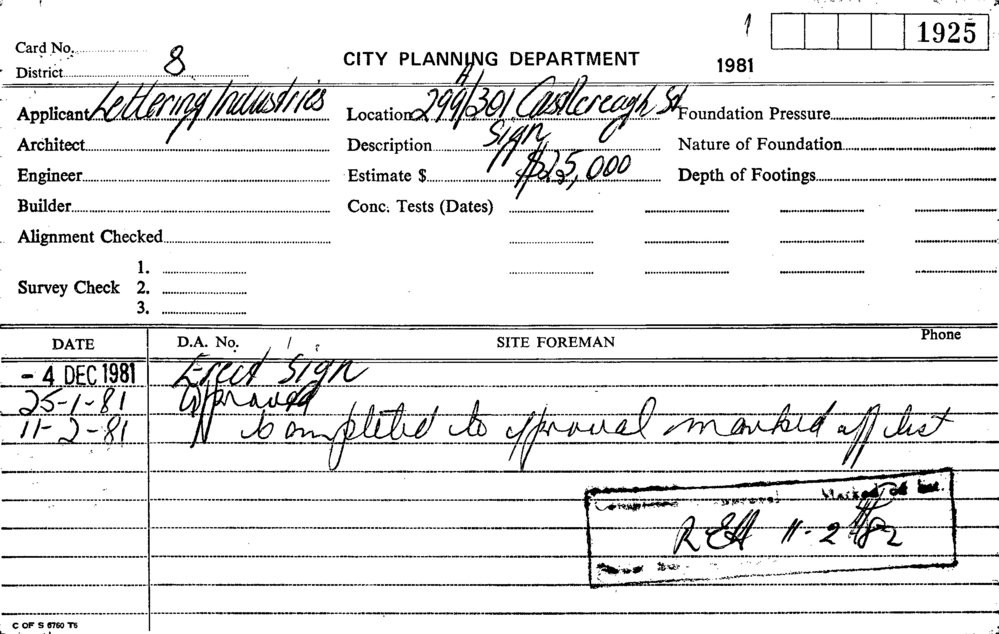 1 1925
Card No.
District 8
CITY PLANNING DEPARTMENT 1981
Applicant Lettering Industries Location 299/301 Castlereagh St Foundation Pressure
Architect Description Sign Nature of Foundation
Engineer Estimate $ $25,000 Depth of Footings
Builder Conc. Tests (Dates)
Alignment Checked
1.
Survey Check 2.
3.
DATE D.A. No. SITE FOREMAN Phone
- 4 DEC 1981 Erect Sign
25-1-81 Approved
11-2-81 Completed to approval marked off list
Approval Marked off
REH 11-2-82
C OF S 6760 T6